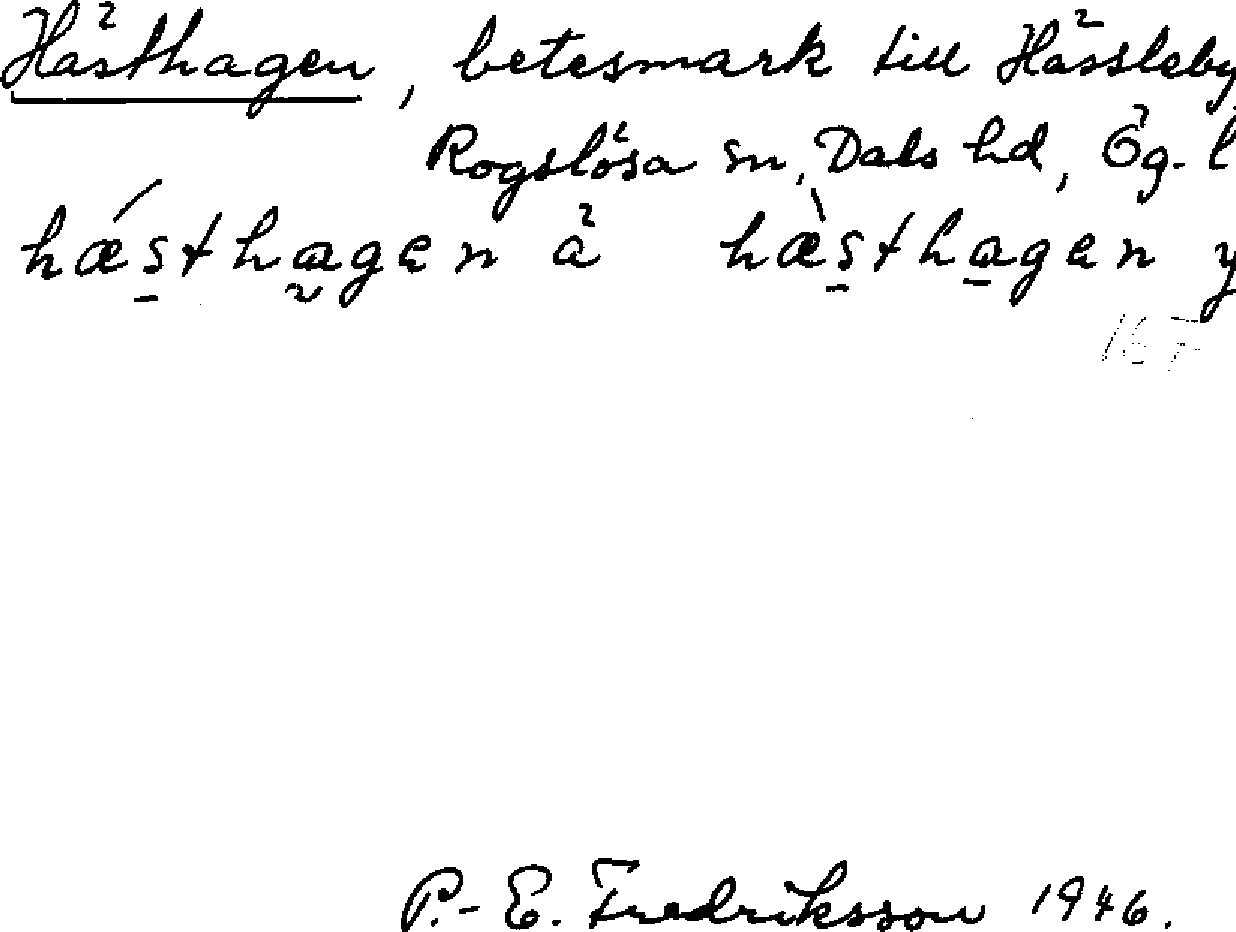 Hästhagen, betesmark till Hässleby,
Rogslösa sn, Dals hd, Ög. l
hæ´sthagen ä hæ`sthagen y
167
P.-E. Fredriksson 1946.